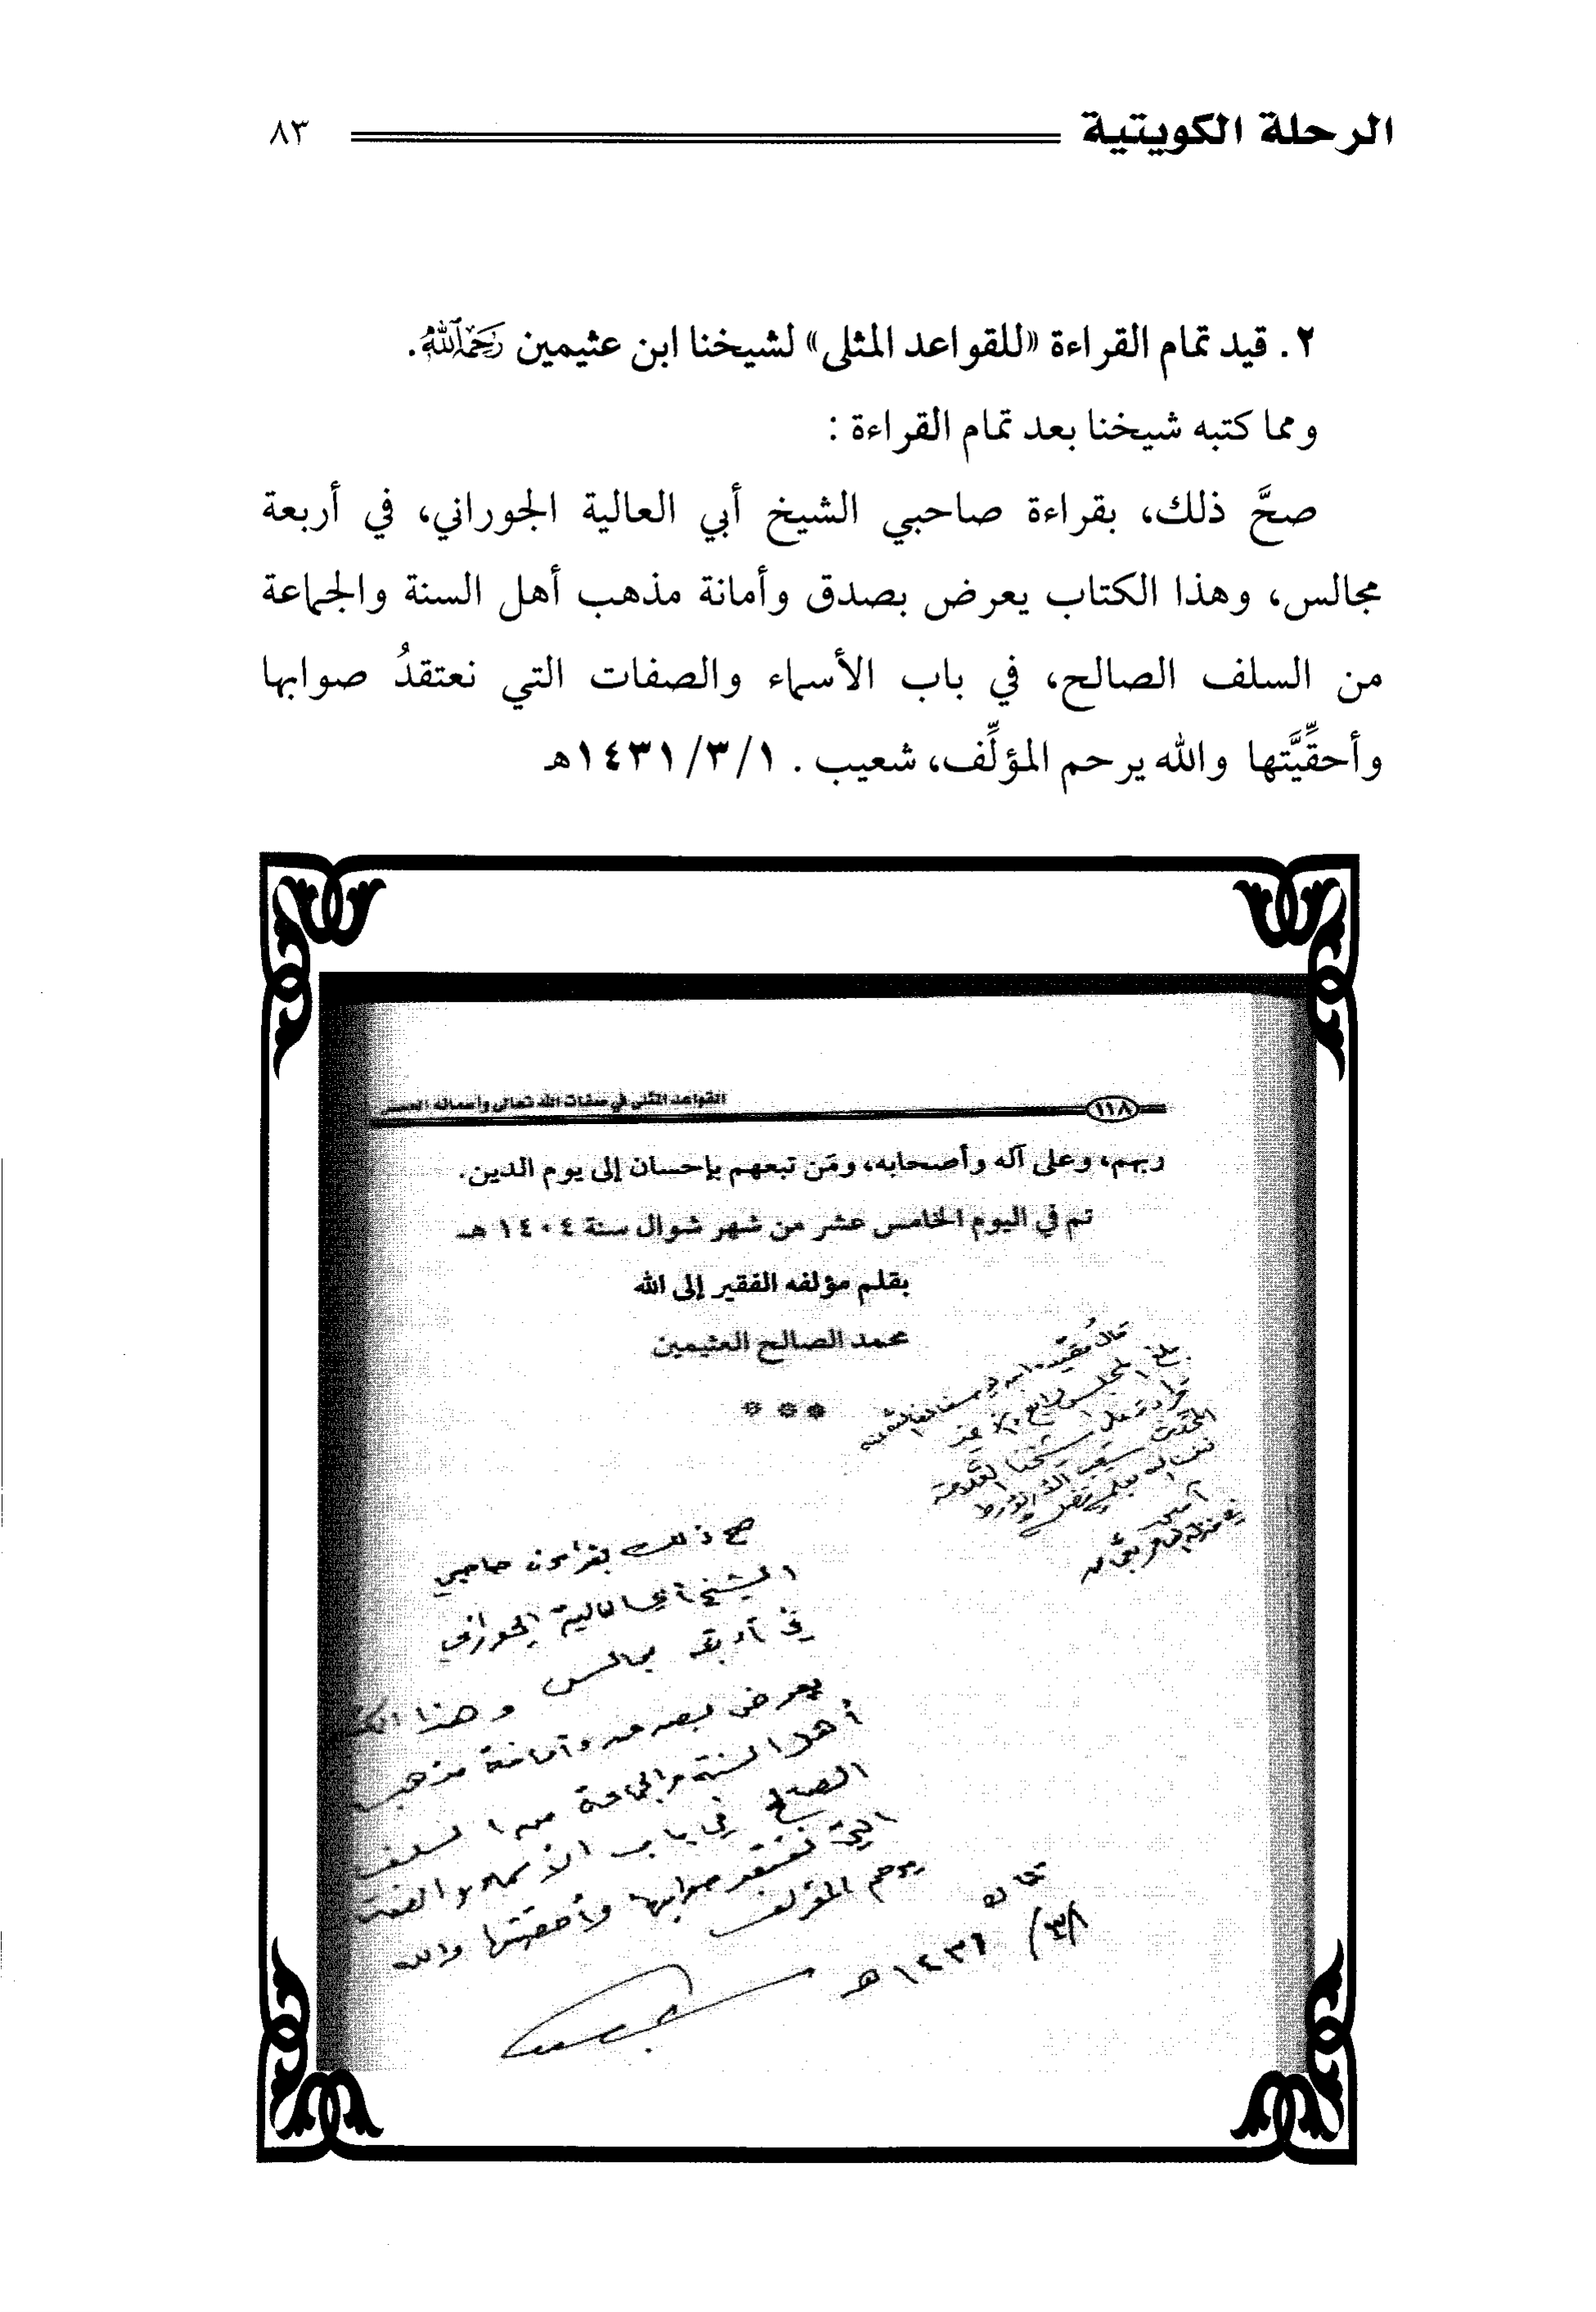 الرحلة الكويتية ٨٣
٢. قيد تمام القراءة «للقواعد المثلى» لشيخنا ابن عثيمين رَحِمَهُ اللَّهُ.
ومما كتبه شيخنا بعد تمام القراءة :
صحَّ ذلك، بقراءة صاحبي الشيخ أبي العالية الجوراني، في أربعة
مجالس، وهذا الكتاب يعرض بصدق وأمانة مذهب أهل السنة والجماعة
من السلف الصالح، في باب الأسماء والصفات التي نعتقدُ صوابها
وأحقِّيَّتها والله يرحم المؤلِّف، شعيب . ١/٣/١٤٣١هـ
١١٨ القواعد المثلى في صفات الله تعالى وأسمائه الحسنى
ربهم، وعلى آله وأصحابه، ومَن تبعهم بإحسان إلى يوم الدين.
تم في اليوم الخامس عشر من شهر شوال سنة ١٤٠٤ هـ
بقلم مؤلفه الفقير إلى الله
محمد الصالح العثيمين
***
بلغ المجلس الرابع
قراءة على شيخنا العلامة
المحدث شعيب الأرنؤوط
آمين
صح ذلك بقراءة صاحبي
الشيخ أبي العالية الجوراني
في أربعة مجالس وهذا الكتاب
يعرض بصدق وأمانة مذهب
أهل السنة والجماعة من السلف
الصالح في باب الأسماء والصفات
التي نعتقد صوابها وأحقيتها والله
يرحم المؤلف
١٤٣١ هـ